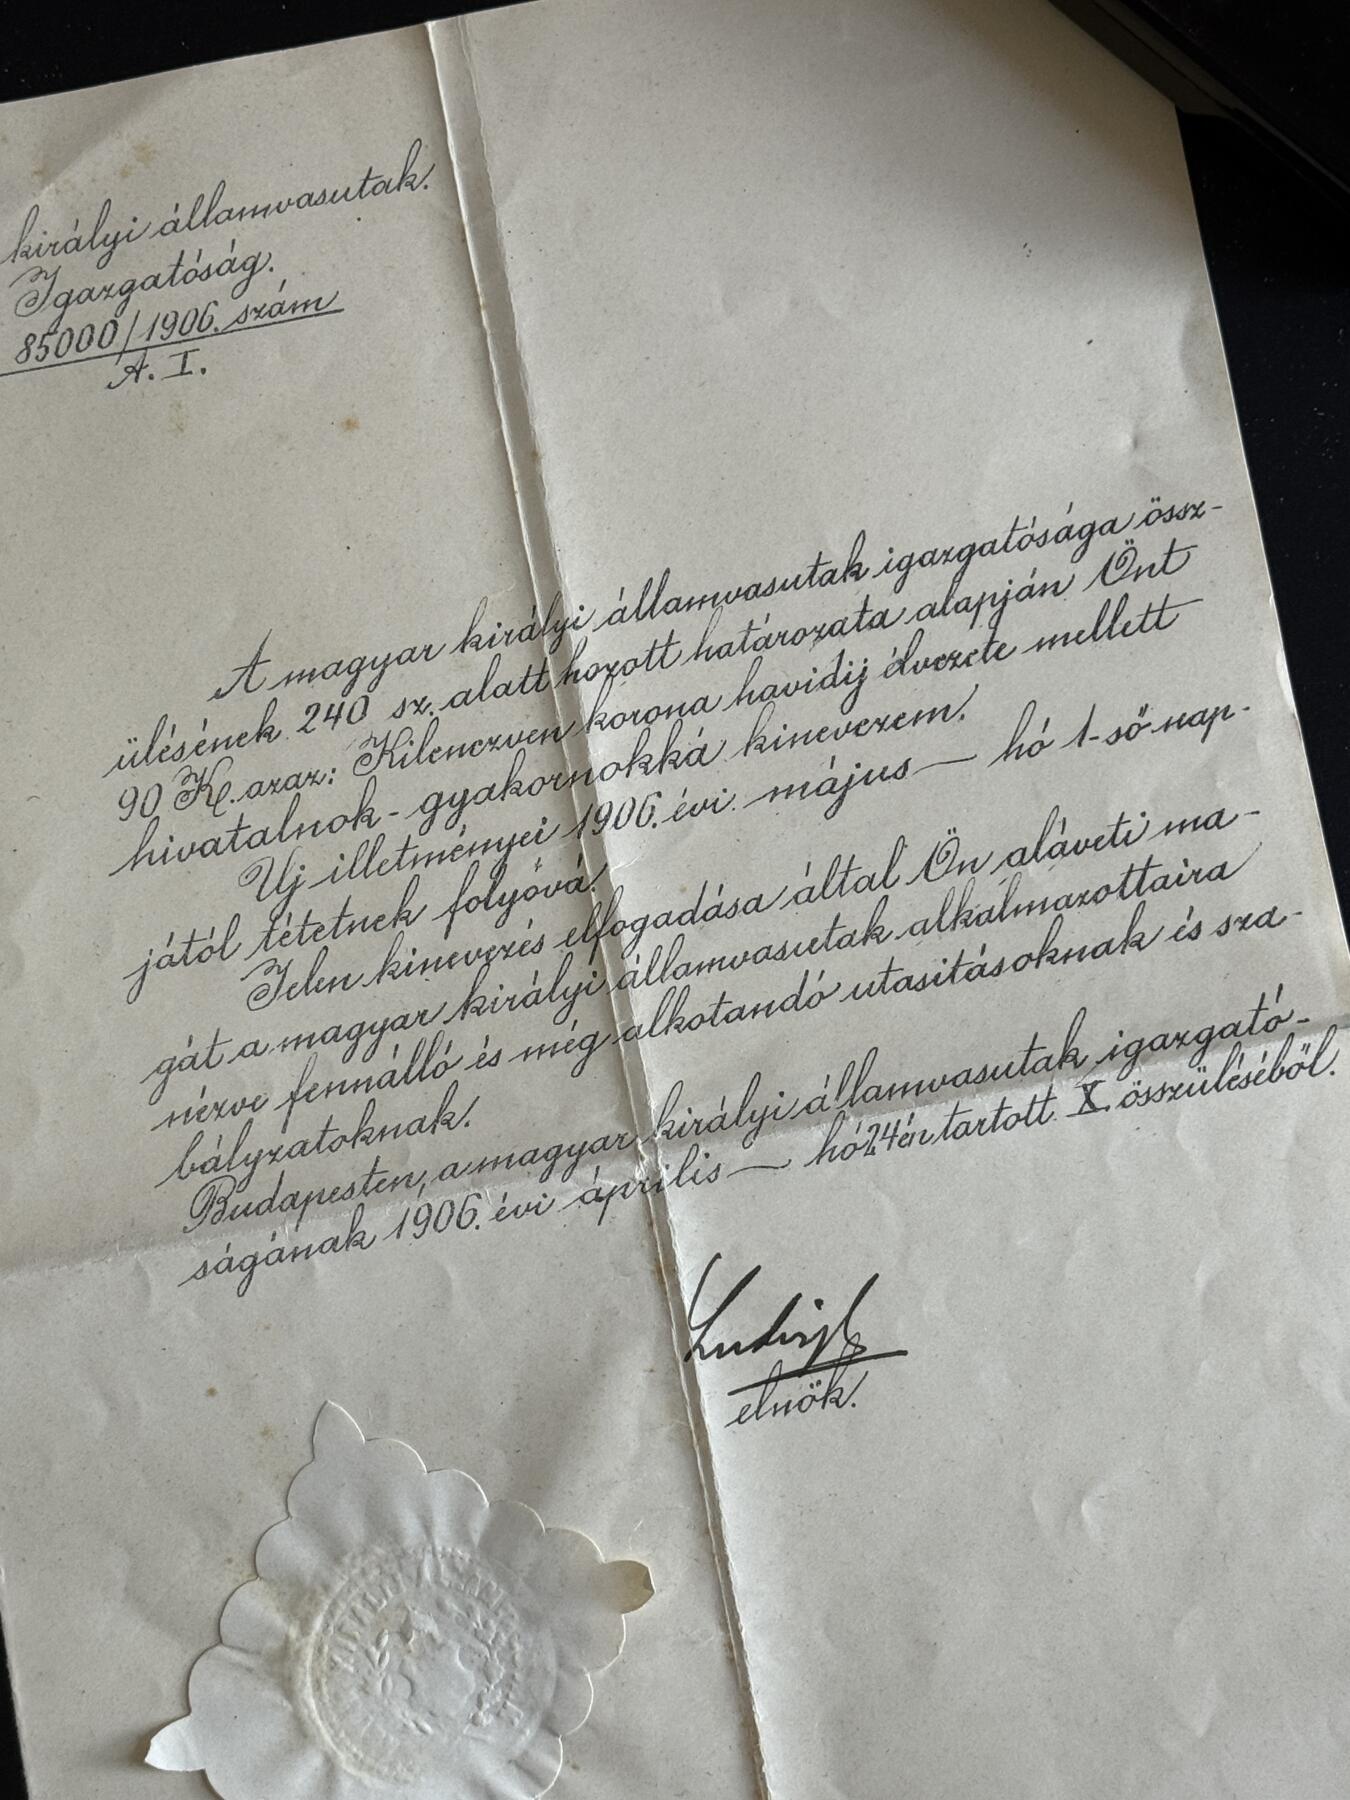 királyi államvasutak.
Igazgatóság.
85000/1906. szám
A. I.
A magyar királyi államvasutak igazgatósága össz-
ülésének 240 sz. alatt hozott határozata alapján Önt
90 K. azaz: Kilenczven korona havidij élvezete mellett
hivatalnok-gyakornokká kinevezem.
Uj illetményei 1906. évi május — hó 1-ső nap-
jától tétetnek folyóvá.
Jelen kinevezés elfogadása által Ön aláveti ma-
gát a magyar királyi államvasutak alkalmazottaira
nézve fennálló és még alkotandó utasitásoknak és sza-
bályzatoknak.
Budapesten, a magyar királyi államvasutak igazgató-
ságának 1906. évi április — hó 24én tartott X. összüléséből.
Ludvigh
elnök.